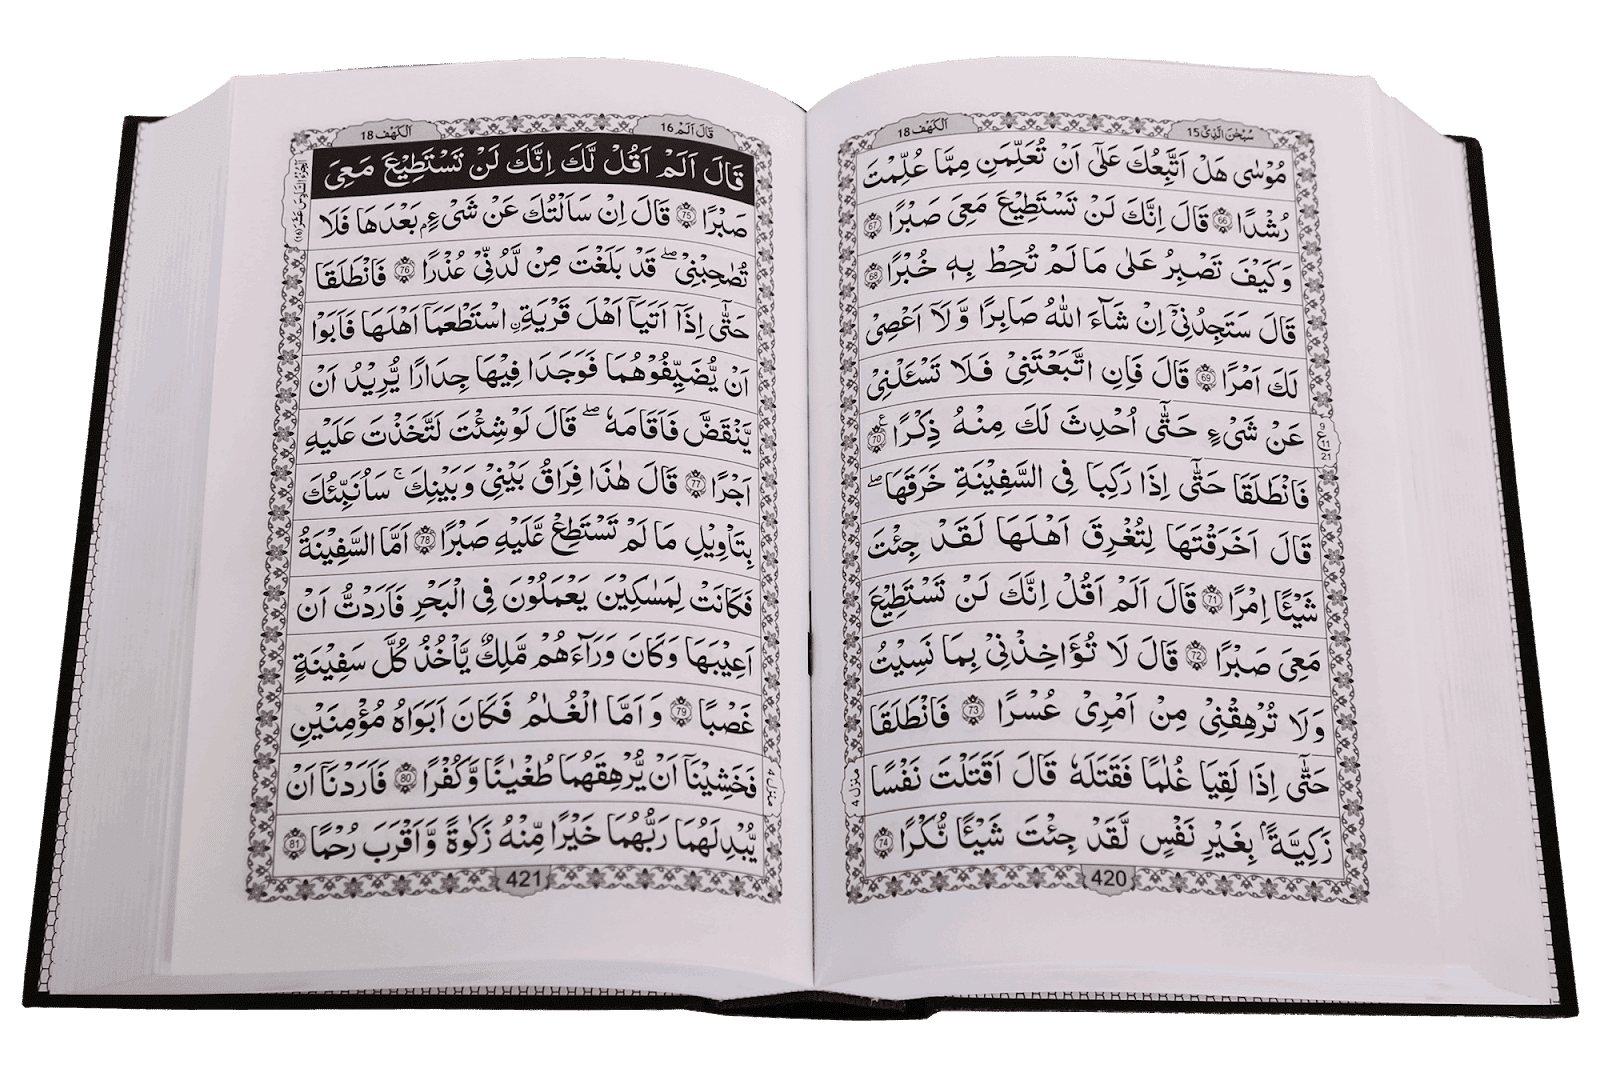 سُبْحٰنَ الَّذِیْۤ 15
اَلْكَهْف 18
مُوْسٰی هَلْ اَتَّبِعُكَ عَلٰۤی اَنْ تُعَلِّمَنِ مِمَّا عُلِّمْتَ
رُشْدًا 66 قَالَ اِنَّكَ لَنْ تَسْتَطِیْعَ مَعِیَ صَبْرًا 67
وَ كَیْفَ تَصْبِرُ عَلٰی مَا لَمْ تُحِطْ بِهٖ خُبْرًا 68
قَالَ سَتَجِدُنِیْۤ اِنْ شَآءَ اللّٰهُ صَابِرًا وَّ لَاۤ اَعْصِیْ
لَكَ اَمْرًا 69 قَالَ فَاِنِ اتَّبَعْتَنِیْ فَلَا تَسْـَٔلْنِیْ
عَنْ شَیْءٍ حَتّٰۤی اُحْدِثَ لَكَ مِنْهُ ذِكْرًا 70 ع
فَانْطَلَقَا حَتّٰۤی اِذَا رَكِبَا فِی السَّفِیْنَةِ خَرَقَهَا ؕ
قَالَ اَخَرَقْتَهَا لِتُغْرِقَ اَهْلَهَا لَقَدْ جِئْتَ
شَیْـًٔا اِمْرًا 71 قَالَ اَلَمْ اَقُلْ اِنَّكَ لَنْ تَسْتَطِیْعَ
مَعِیَ صَبْرًا 72 قَالَ لَا تُؤَاخِذْنِیْ بِمَا نَسِیْتُ
وَ لَا تُرْهِقْنِیْ مِنْ اَمْرِیْ عُسْرًا 73 فَانْطَلَقَا
حَتّٰۤی اِذَا لَقِیَا غُلٰمًا فَقَتَلَهٗ قَالَ اَقَتَلْتَ نَفْسًا
زَكِیَّةًۢ بِغَیْرِ نَفْسٍ لَقَدْ جِئْتَ شَیْـًٔا نُّكْرًا 74
9
ع
11
21
منزل 4
420
قَالَ اَلَمْ 16
اَلْكَهْف 18
قَالَ اَلَمْ اَقُلْ لَّكَ اِنَّكَ لَنْ تَسْتَطِیْعَ مَعِیَ
صَبْرًا 75 قَالَ اِنْ سَاَلْتُكَ عَنْ شَیْءٍۭ بَعْدَهَا فَلَا
تُصٰحِبْنِیْ ۚ قَدْ بَلَغْتَ مِنْ لَّدُنِّیْ عُذْرًا 76 فَانْطَلَقَا
حَتّٰۤی اِذَاۤ اَتَیَاۤ اَهْلَ قَرْیَةِ ِ۟اسْتَطْعَمَاۤ اَهْلَهَا فَاَبَوْا
اَنْ یُّضَیِّفُوْهُمَا فَوَجَدَا فِیْهَا جِدَارًا یُّرِیْدُ اَنْ
یَّنْقَضَّ فَاَقَامَهٗ ؕ قَالَ لَوْ شِئْتَ لَتَّخَذْتَ عَلَیْهِ
اَجْرًا 77 قَالَ هٰذَا فِرَاقُ بَیْنِیْ وَ بَیْنِكَ ۚ سَاُنَبِّئُكَ
بِتَاْوِیْلِ مَا لَمْ تَسْتَطِعْ عَّلَیْهِ صَبْرًا 78 اَمَّا السَّفِیْنَةُ
فَكَانَتْ لِمَسٰكِیْنَ یَعْمَلُوْنَ فِی الْبَحْرِ فَاَرَدْتُّ اَنْ
اَعِیْبَهَا وَ كَانَ وَرَآءَهُمْ مَّلِكٌ یَّاْخُذُ كُلَّ سَفِیْنَةٍ
غَصْبًا 79 وَ اَمَّا الْغُلٰمُ فَكَانَ اَبَوٰهُ مُؤْمِنَیْنِ
فَخَشِیْنَاۤ اَنْ یُّرْهِقَهُمَا طُغْیَانًا وَّ كُفْرًا 80 فَاَرَدْنَاۤ اَنْ
یُّبْدِلَهُمَا رَبُّهُمَا خَیْرًا مِّنْهُ زَكٰوةً وَّ اَقْرَبَ رُحْمًا 81
اَلْجُزْءُ السَّادِسُ عَشَرَ (16)
منزل 4
421